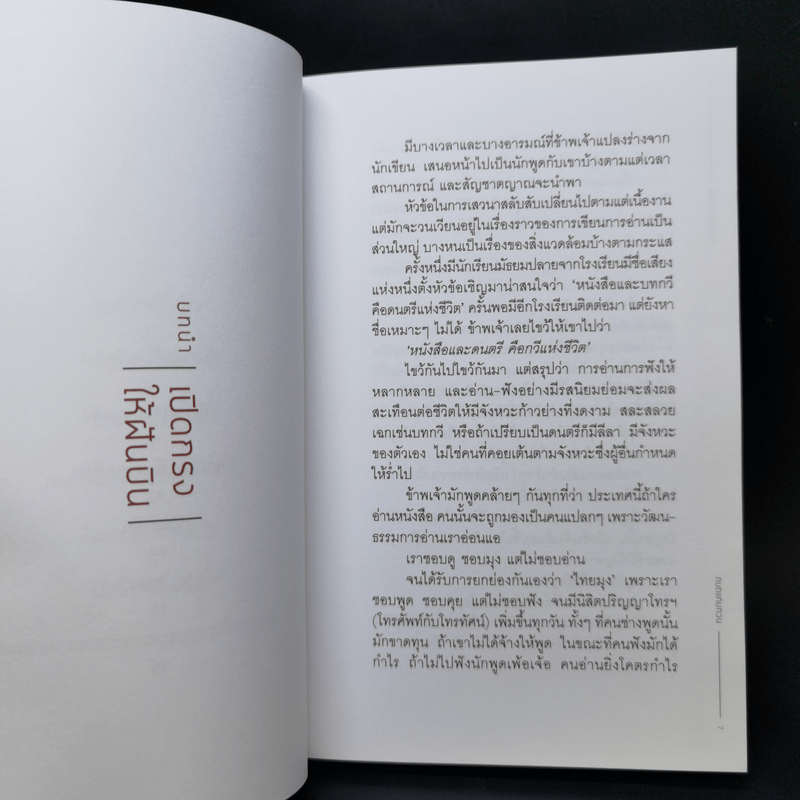 บทนำ
เปิดกรง
ให้ฝันบิน
มีบางเวลาและบางอารมณ์ที่ข้าพเจ้าแปลงร่างจาก
นักเขียน เสนอหน้าไปเป็นนักพูดกับเขาบ้างตามแต่เวลา
สถานการณ์ และสัญชาตญาณจะนำพา
หัวข้อในการเสวนาสลับสับเปลี่ยนไปตามแต่เนื้องาน
แต่มักจะวนเวียนอยู่ในเรื่องราวของการเขียนการอ่านเป็น
ส่วนใหญ่ บางหนเป็นเรื่องของสิ่งแวดล้อมบ้างตามกระแส
ครั้งหนึ่งมีนักเรียนมัธยมปลายจากโรงเรียนมีชื่อเสียง
แห่งหนึ่งตั้งหัวข้อเชิญมาน่าสนใจว่า ‘หนังสือและบทกวี
คือดนตรีแห่งชีวิต’ ครั้นพอมีอีกโรงเรียนติดต่อมา แต่ยังหา
ชื่อเหมาะๆ ไม่ได้ ข้าพเจ้าเลยไขว้ให้เขาไปว่า
‘หนังสือและดนตรี คือกวีแห่งชีวิต’
ไขว้กันไปไขว้กันมา แต่สรุปว่า การอ่านการฟังให้
หลากหลาย และอ่าน-ฟังอย่างมีรสนิยมย่อมจะส่งผล
สะเทือนต่อชีวิตให้มีจังหวะก้าวย่างที่งดงาม สละสลวย
เฉกเช่นบทกวี หรือถ้าเปรียบเป็นดนตรีก็มีลีลา มีจังหวะ
ของตัวเอง ไม่ใช่คนที่คอยเต้นตามจังหวะซึ่งผู้อื่นกำหนด
ให้ร่ำไป
ข้าพเจ้ามักพูดคล้ายๆ กันทุกที่ว่า ประเทศนี้ถ้าใคร
อ่านหนังสือ คนนั้นจะถูกมองเป็นคนแปลกๆ เพราะวัฒน-
ธรรมการอ่านเราอ่อนแอ
เราชอบดู ชอบมุง แต่ไม่ชอบอ่าน
จนได้รับการยกย่องกันเองว่า ‘ไทยมุง’ เพราะเรา
ชอบพูด ชอบคุย แต่ไม่ชอบฟัง จนมีนิสิตปริญญาโทรฯ
(โทรศัพท์กับโทรทัศน์) เพิ่มขึ้นทุกวัน ทั้งๆ ที่คนช่างพูดนั้น
มักขาดทุน ถ้าเขาไม่ได้จ้างให้พูด ในขณะที่คนฟังมักได้
กำไร ถ้าไม่ไปฟังนักพูดเพ้อเจ้อ คนอ่านยิ่งโคตรกำไร
7